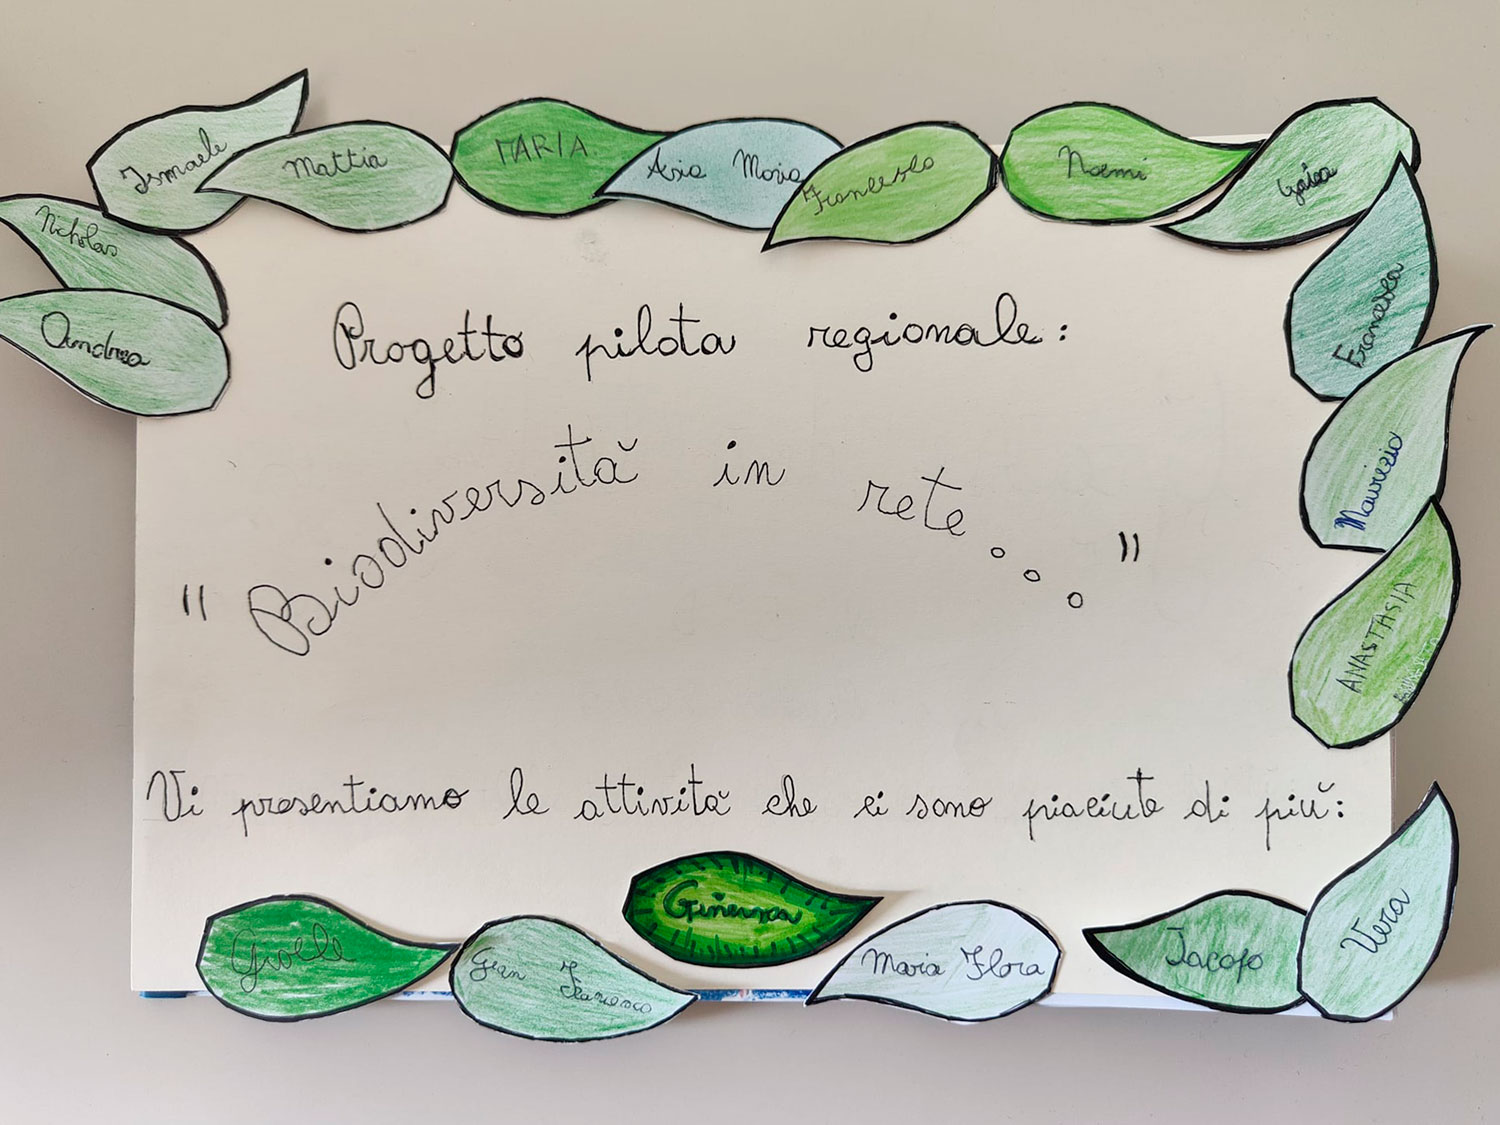 Ismaele
Mattia
MARIA
Asia Maria
Francesco
Noemi
Gaia
Nicholas
Andrea
Francesca
Maurizio
ANASTASIA
Progetto pilota regionale:
"Biodiversità in rete..."
Vi presentiamo le attività che ci sono piaciute di più:
Gioele
Gian Francesco
Ginevra
Maria Flora
Jacopo
Vera